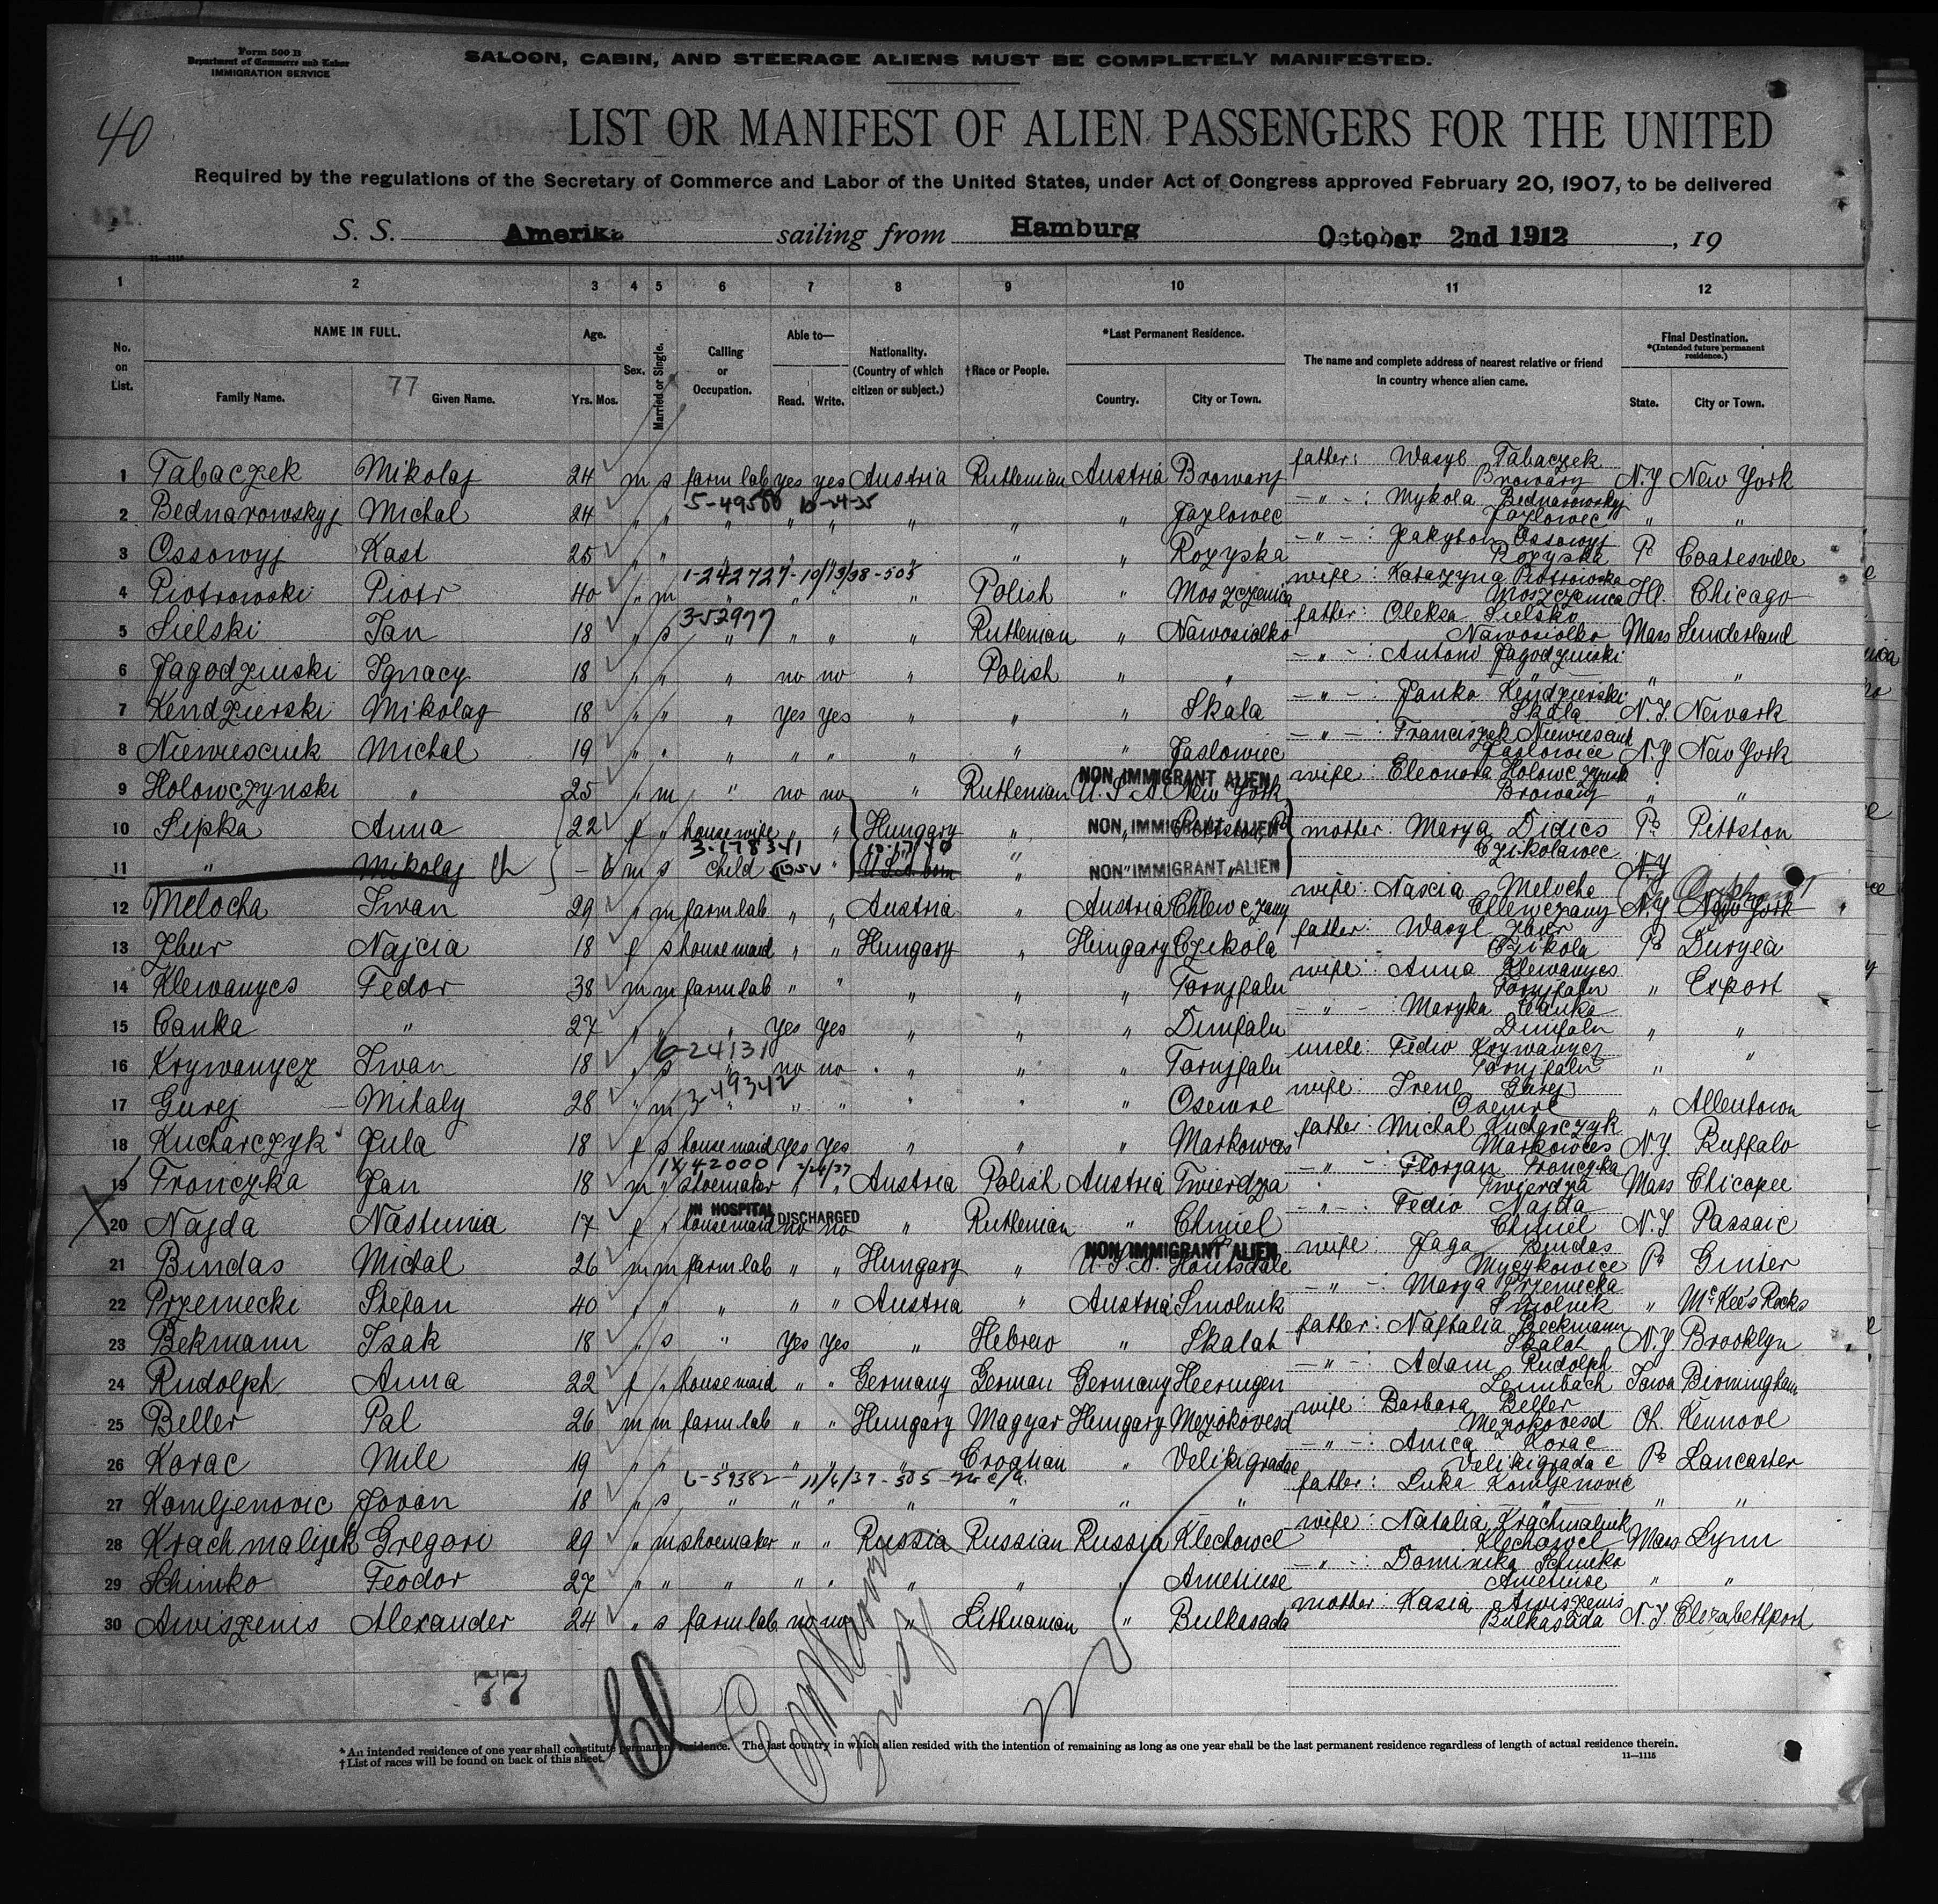 Form 500 B
Department of Commerce and Labor
IMMIGRATION SERVICE
SALOON, CABIN, AND STEERAGE ALIENS MUST BE COMPLETELY MANIFESTED.
40
LIST OR MANIFEST OF ALIEN PASSENGERS FOR THE UNITED
Required by the regulations of the Secretary of Commerce and Labor of the United States, under Act of Congress approved February 20, 1907, to be delivered
S. S. Amerika sailing from Hamburg October 2nd 1912, 19
1 2 3 4 5 6 7 8 9 10 11 12
No. on List. NAME IN FULL. Family Name. Given Name. Age. Yrs. Mos. Sex. Married or Single. Calling or Occupation. Able to— Read. Write. Nationality. (Country of which citizen or subject.) †Race or People. *Last Permanent Residence. Country. City or Town. The name and complete address of nearest relative or friend in country whence alien came. Final Destination. *(Intended future permanent residence.) State. City or Town.
77
1 Tabaczek Mikolaj 24 m s farm lab yes yes Austria Ruthenian Austria Browary father: Wasyl Tabaczek Browary N.Y New York
5-49588 10-24-35
2 Bednarowskyj Michal 24 " " " " " " " " Jazlowec - " - : Mykola Bednarowskyj Jazlowec " "
3 Ossowyj Kast 25 " " " " " " " " Rozyska - " - : Ossowyj Rozyska Pa Coatesville
1-242727-10/13/38-505
4 Piotrowski Piotr 40 " m " " " " Polish " Moszczenica wife: Katarzyna Piotrowska Moszczenica Ill. Chicago
3-52977
5 Sielski Jan 18 " s " " " " Ruthenian " Nawosiolko father: Oleksa Sielsko Nawosiolko Mass Sunderland
6 Jagodzinski Ignacy 18 " " " no no " Polish " " - " - : Antoni Jagodzinski " " "
7 Kendzierski Mikolaj 18 " " " yes yes " " " Skala - " - : Janko Kendzierski Skala N.J. Newark
8 Niewiesciuk Michal 19 " " " " " " " " Jaslowiec - " - : Franciszek Jaslowice N.Y. New York
NON IMMIGRANT ALIEN
9 Holowczynski " 25 " m " no no " Ruthenian U.S.A. New York wife: Eleonora Browary " "
10 Sepka Anna 22 f " housewife " " Hungary " NON IMMIGRANT ALIEN mother: Marya Didics Czikolawec Pa Pittston
3-178341 10-17/40
11 " Mikolaj - 6 m s child " U.S.A. born " NON IMMIGRANT ALIEN
12 Melocha Iwan 29 " m farm lab " " Austria " Austria Chlewczany wife: Nascia Melocha Chlewczany N.Y New York
13 Zbur Najcia 18 f s housemaid " " Hungary " Hungary Czikola father: Wasyl Zbur Czikola Pa Duryea
14 Klewanycs Fedor 38 m m farm lab " " " " " Tornjfalu wife: Anna Klewanycs Tornjfalu " Export
15 Canka " 27 " " " yes yes " " " Dunifalu - " - : Maryka Canka Dunifalu " "
6-24131
16 Krywanycz Iwan 18 " s " no no " " " Tornjfalu uncle: Fedio Krywanycz Tornjfalu " "
3-49342
17 Gurej Mihaly 28 " m " " " " " " Osewre wife: Irene Gurej Osewre " Allentown
18 Kucharczyk Jula 18 f s housemaid yes yes " " " Markowces father: Michal Kucharczyk Markowces N.Y. Buffalo
1X-42000 2/26/37
19 Fronczka Jan 18 m " shoemaker " " Austria Polish Austria Twierdza - " - : Florjan Fronczka Twierdza Mass Chicopee
IN HOSPITAL DISCHARGED
20 Najda Nastunia 17 f " housemaid no no " Ruthenian " Chmiel - " - : Fedio Najda Chmiel N.J. Passaic
NON IMMIGRANT ALIEN
21 Bindas Michal 26 m m farm lab " " Hungary " U.S.A. Houtsdale wife: Jaga Bindas Myczkowice Pa Ginter
22 Przemecki Stefan 40 " " " " " Austria " Austria Smolnik - " - : Marya Przemecka Smolnik " Mc Kees Rocks
23 Bekmann Isak 18 " s " yes yes " Hebrew " Skalat father: Naftalia Beckmann Skalat N.Y. Brooklyn
24 Rudolph Anna 22 f " housemaid " " Germany German Germany Heeringen - " - : Adam Rudolph Leimbach Iowa Birmingham
25 Beller Pal 26 m m farm lab " " Hungary Magyar Hungary Mezökovesd wife: Barbara Beller Mezökovesd Oh. Kennove
26 Korac Mile 19 " " " " " " Croatian " Velikigradac - " - : Anica Korac Velikigradac Pa Lancaster
6-59382 - 11/6/37 - 505 - no c/a
27 Komljenovic Jovan 18 " s " " " " " " " father: Luka Komljenovic " " "
28 Krachmalijek Gregori 29 " m shoemaker " " Russia Russian Russia Klechowel wife: Natalia Krachmalnik Klechowel Mass Lynn
29 Schimko Feodor 27 " " " " " " " " Ametinse - " - : Dominika Schimko Ametinse " "
30 Awiszenis Alexander 24 " s farm lab no no " Lithuanian " Bulkasada mother: Kasia Awiszenis Bulkasada N.J Elizabethport
77
*An intended residence of one year shall constitute permanent residence. The last country in which alien resided with the intention of remaining as long as one year shall be the last permanent residence regardless of length of actual residence therein.
†List of races will be found on back of this sheet.
11—1115